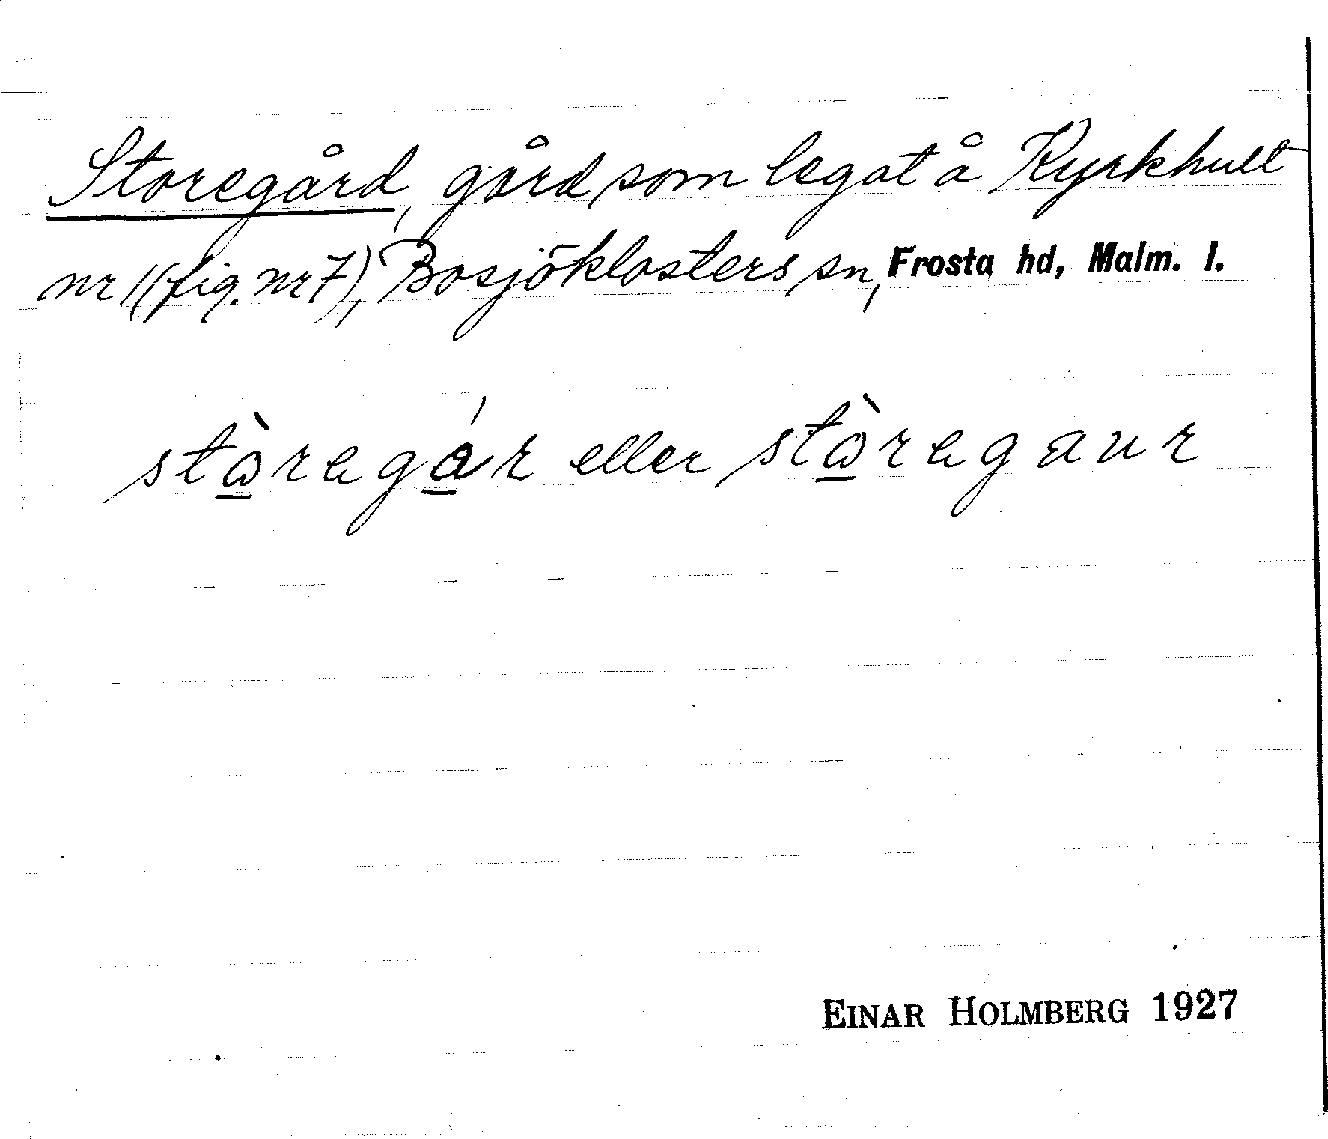 Storegård, gård som legat å Kyrkhult
nr 1 (fig. nr 7), Bosjöklosters sn, Frosta hd, Malm. l.
stòregár eller stòregaur
EINAR HOLMBERG 1927